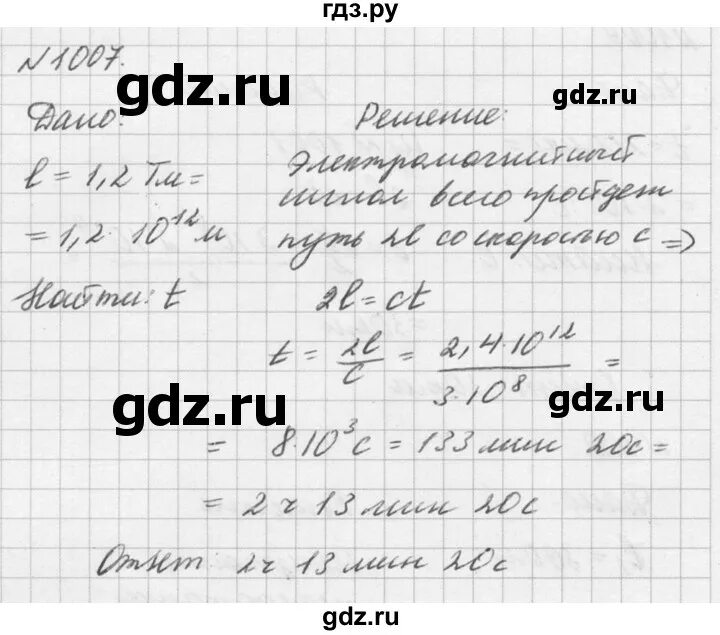 гдз.ру
№1007.
gdz.ru gdz.ru
Дано: Решение:
l = 1,2 Тм = Электромагнитный
сигнал всего пройдет
= 1,2·10¹² м путь 2l со скоростью c ⇒
Найти: t 2l = ct
t = 2l/c = 2,4·10¹²/3·10⁸ =
gdz.ru gdz.ru
= 8·10³ с = 133 мин 20с =
= 2 ч 13 мин 20с
Ответ: 2ч 13 мин 20с
gdz.ru